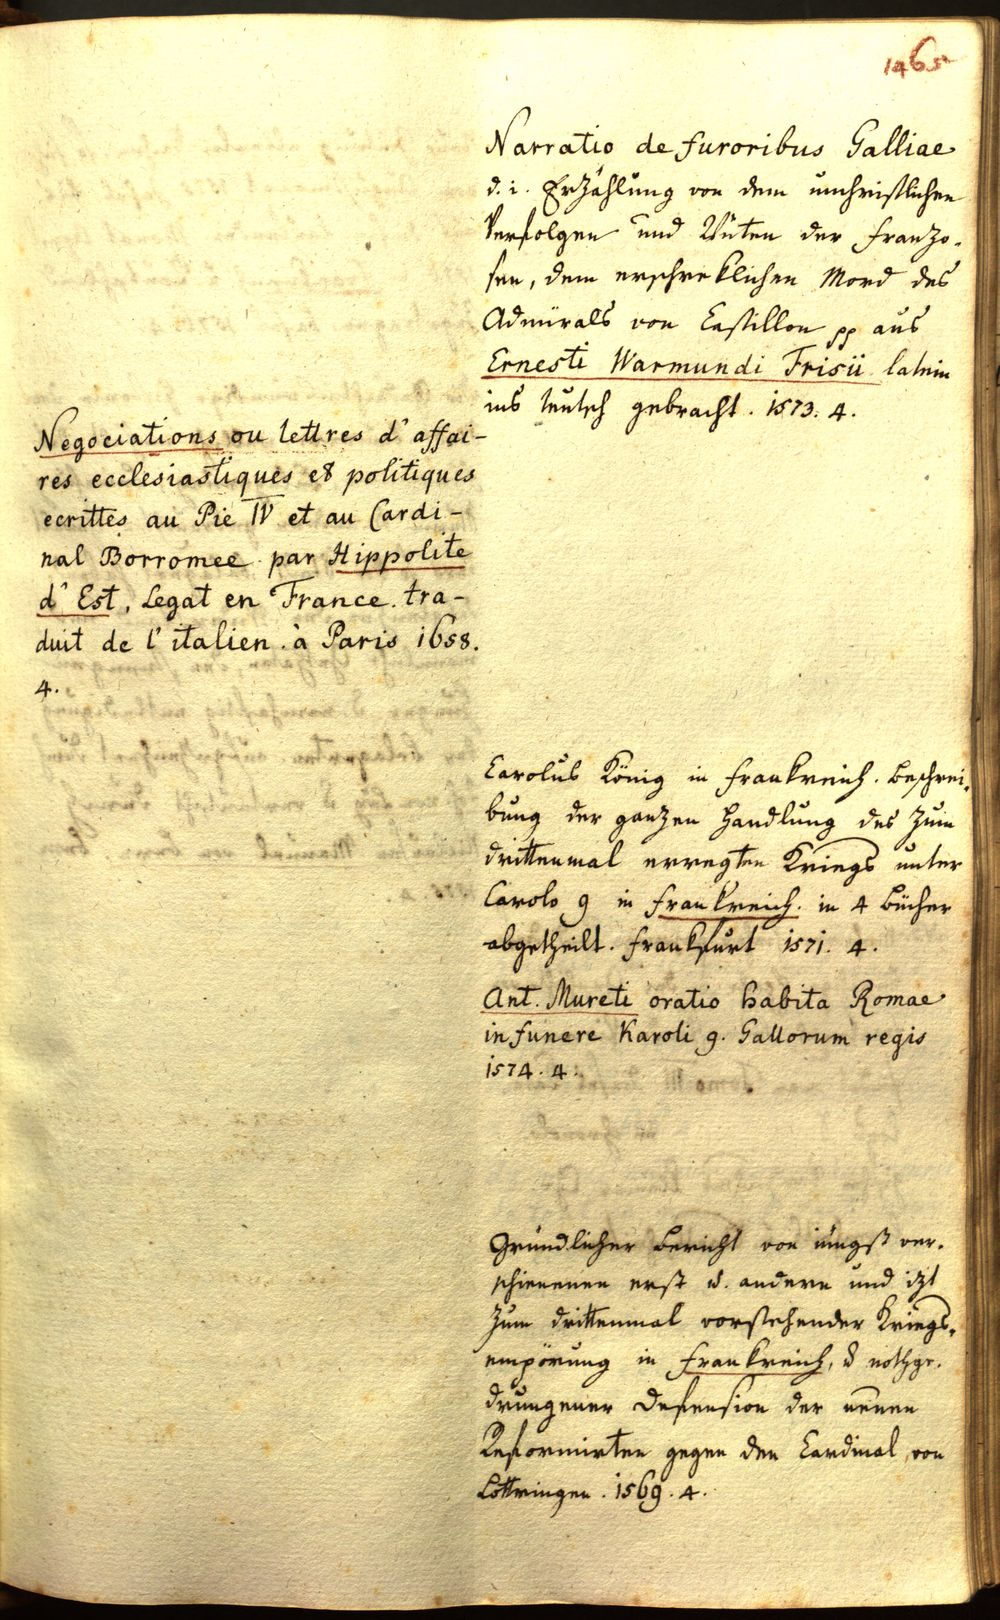 1465
Narratio de furoribus Galliae
d. i. Erzählung von dem unchristlichen
Verfolgen und Wüten der Franzo-
sen, dem erschreklichen Mord des
Admirals von Castillon pp aus
Ernesti Warmundi Frisii latein
ins teutsch gebracht. 1573. 4.
Negociations ou lettres d'affai-
res ecclesiastiques et politiques
ecrittes au Pie IV et au Cardi-
nal Borromee par Hippolite
d'Est, Legat en France. tra-
duit de l'italien. à Paris 1658.
4.
Carolus König in Frankreich. Beschrei-
bung der ganzen Handlung des zum
drittenmal erregten Kriegs unter
Carolo 9 in Frankreich. in 4 Bücher
abgetheilt. Frankfurt 1571. 4.
Ant. Mureti oratio habita Romae
in funere Karoli 9. Gallorum regis
1574. 4.
Gründlicher Bericht von jüngst ver-
schienenen erst u. andern und itzt
zum drittenmal vorstehender Kriegs-
empörung in Frankreich, u nothge-
drungener Defension der neuen
Reformirten gegen den Cardinal von
Lottringen. 1569. 4.